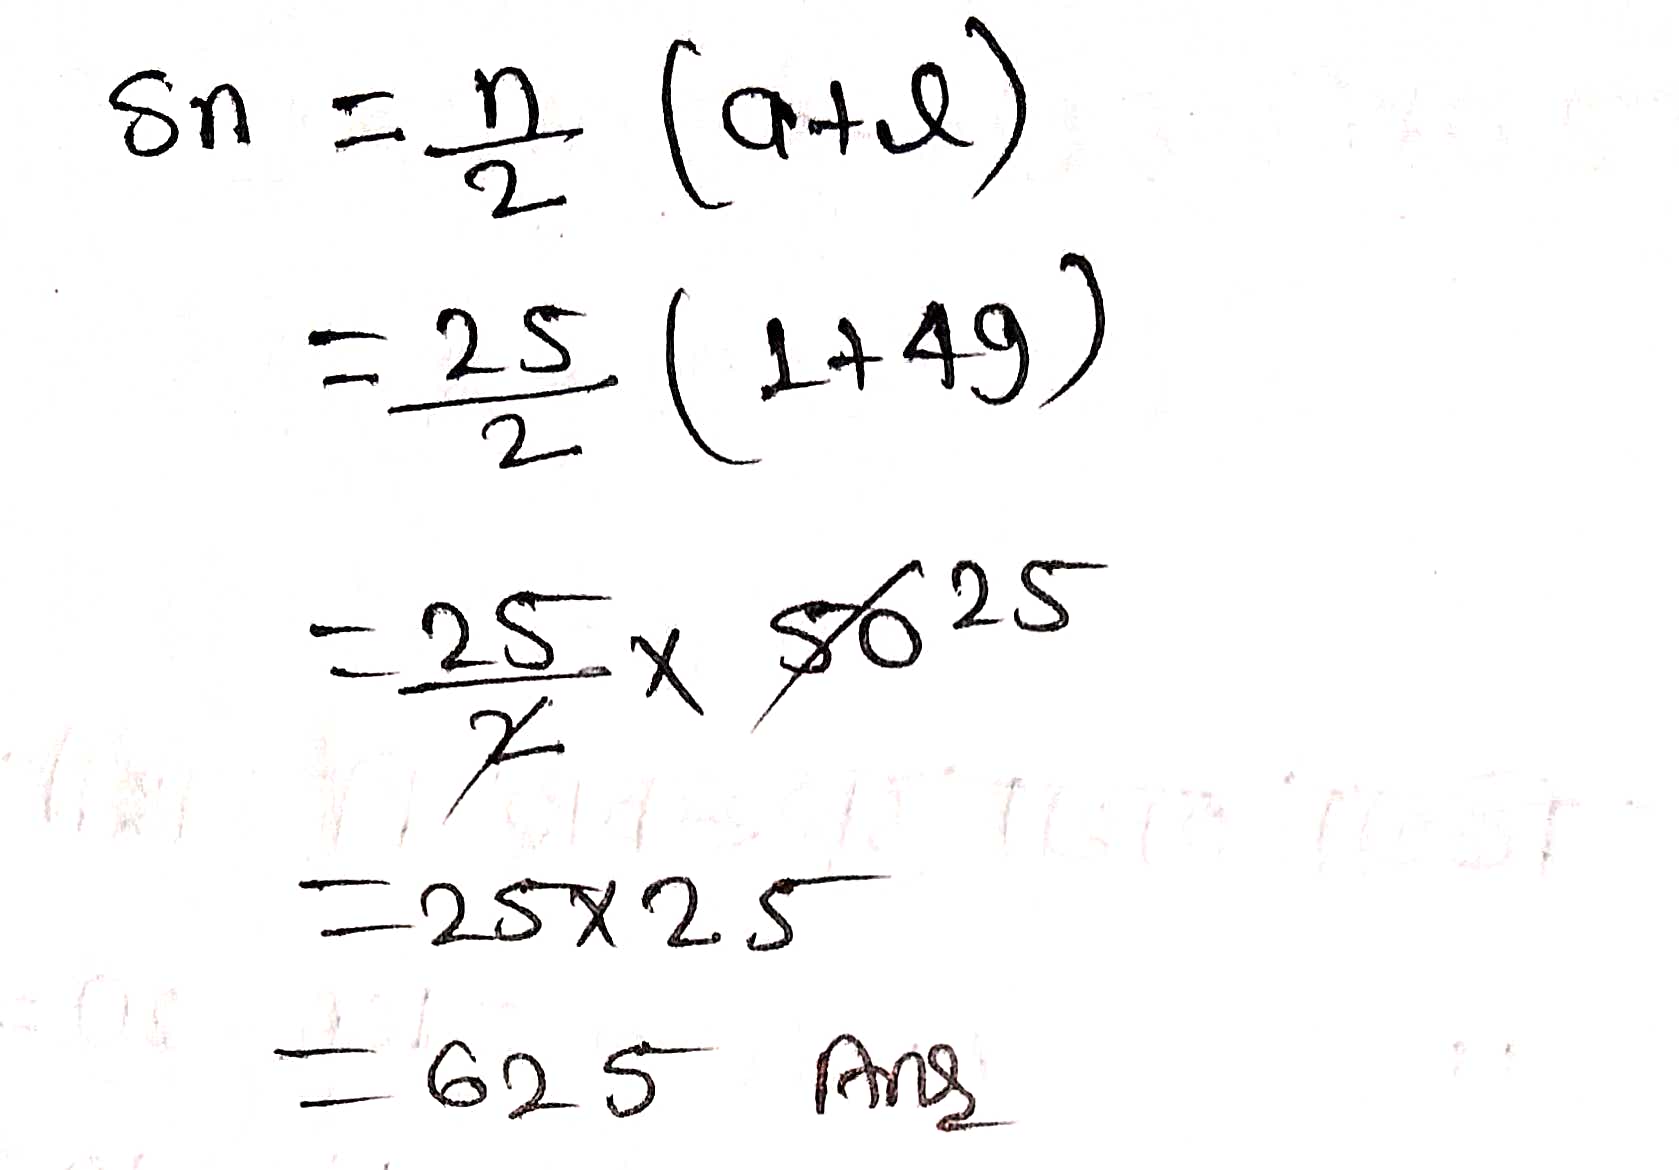 Sn = n/2 (a+l)
= 25/2 (1+49)
= 25/2 × 50 25
= 25×25
= 625 Ans